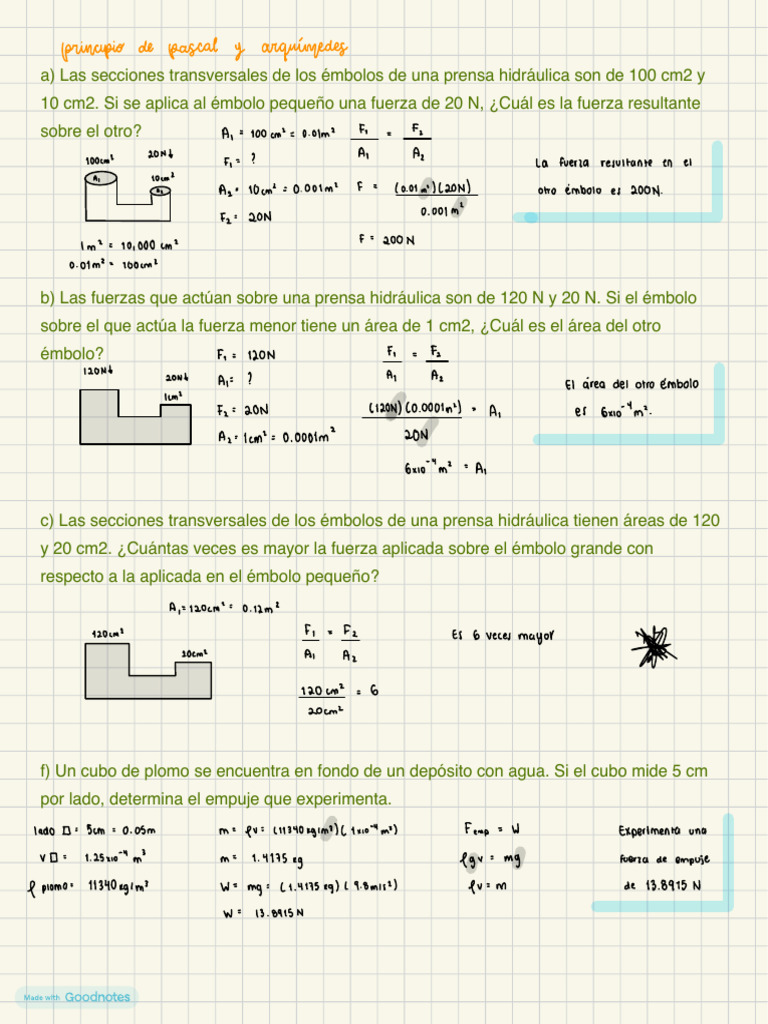 principio de pascal y arquímedes
a) Las secciones transversales de los émbolos de una prensa hidráulica son de 100 cm2 y
10 cm2. Si se aplica al émbolo pequeño una fuerza de 20 N, ¿Cuál es la fuerza resultante
sobre el otro?
100cm²
20N↓
A₁
10cm²
A₂
1m² = 10,000 cm²
0.01m² = 100cm²
A₁ = 100 cm² = 0.01m²
F₁ = ?
A₂ = 10cm² = 0.001m²
F₂ = 20N
F₁ = F₂
A₁ A₂
F = (0.01 m²)(20N)
0.001 m²
F = 200 N
La fuerza resultante en el
otro émbolo es 200N.
b) Las fuerzas que actúan sobre una prensa hidráulica son de 120 N y 20 N. Si el émbolo
sobre el que actúa la fuerza menor tiene un área de 1 cm2, ¿Cuál es el área del otro
émbolo?
120N↓
20N↓
1cm²
F₁ = 120N
A₁ = ?
F₂ = 20N
A₂ = 1cm² = 0.0001m²
F₁ = F₂
A₁ A₂
(120N)(0.0001m²) = A₁
20N
6x10⁻⁴ m² = A₁
El área del otro émbolo
es 6x10⁻⁴ m².
c) Las secciones transversales de los émbolos de una prensa hidráulica tienen áreas de 120
y 20 cm2. ¿Cuántas veces es mayor la fuerza aplicada sobre el émbolo grande con
respecto a la aplicada en el émbolo pequeño?
A₁ = 120cm² = 0.12m²
120cm²
20cm²
F₁ = F₂
A₁ A₂
120 cm² = 6
20cm²
Es 6 veces mayor
f) Un cubo de plomo se encuentra en fondo de un depósito con agua. Si el cubo mide 5 cm
por lado, determina el empuje que experimenta.
lado □ = 5cm = 0.05m
V □ = 1.25x10⁻⁴ m³
ρ plomo = 11340 kg/m³
m = ρv = (11340 kg/m³)(1x10⁻⁴ m³)
m = 1.4175 kg
W = mg = (1.4175 kg)(9.8m/s²)
W = 13.8915N
Femp = W
ρgv = mg
ρv = m
Experimenta una
fuerza de empuje
de 13.8915 N
Made with Goodnotes